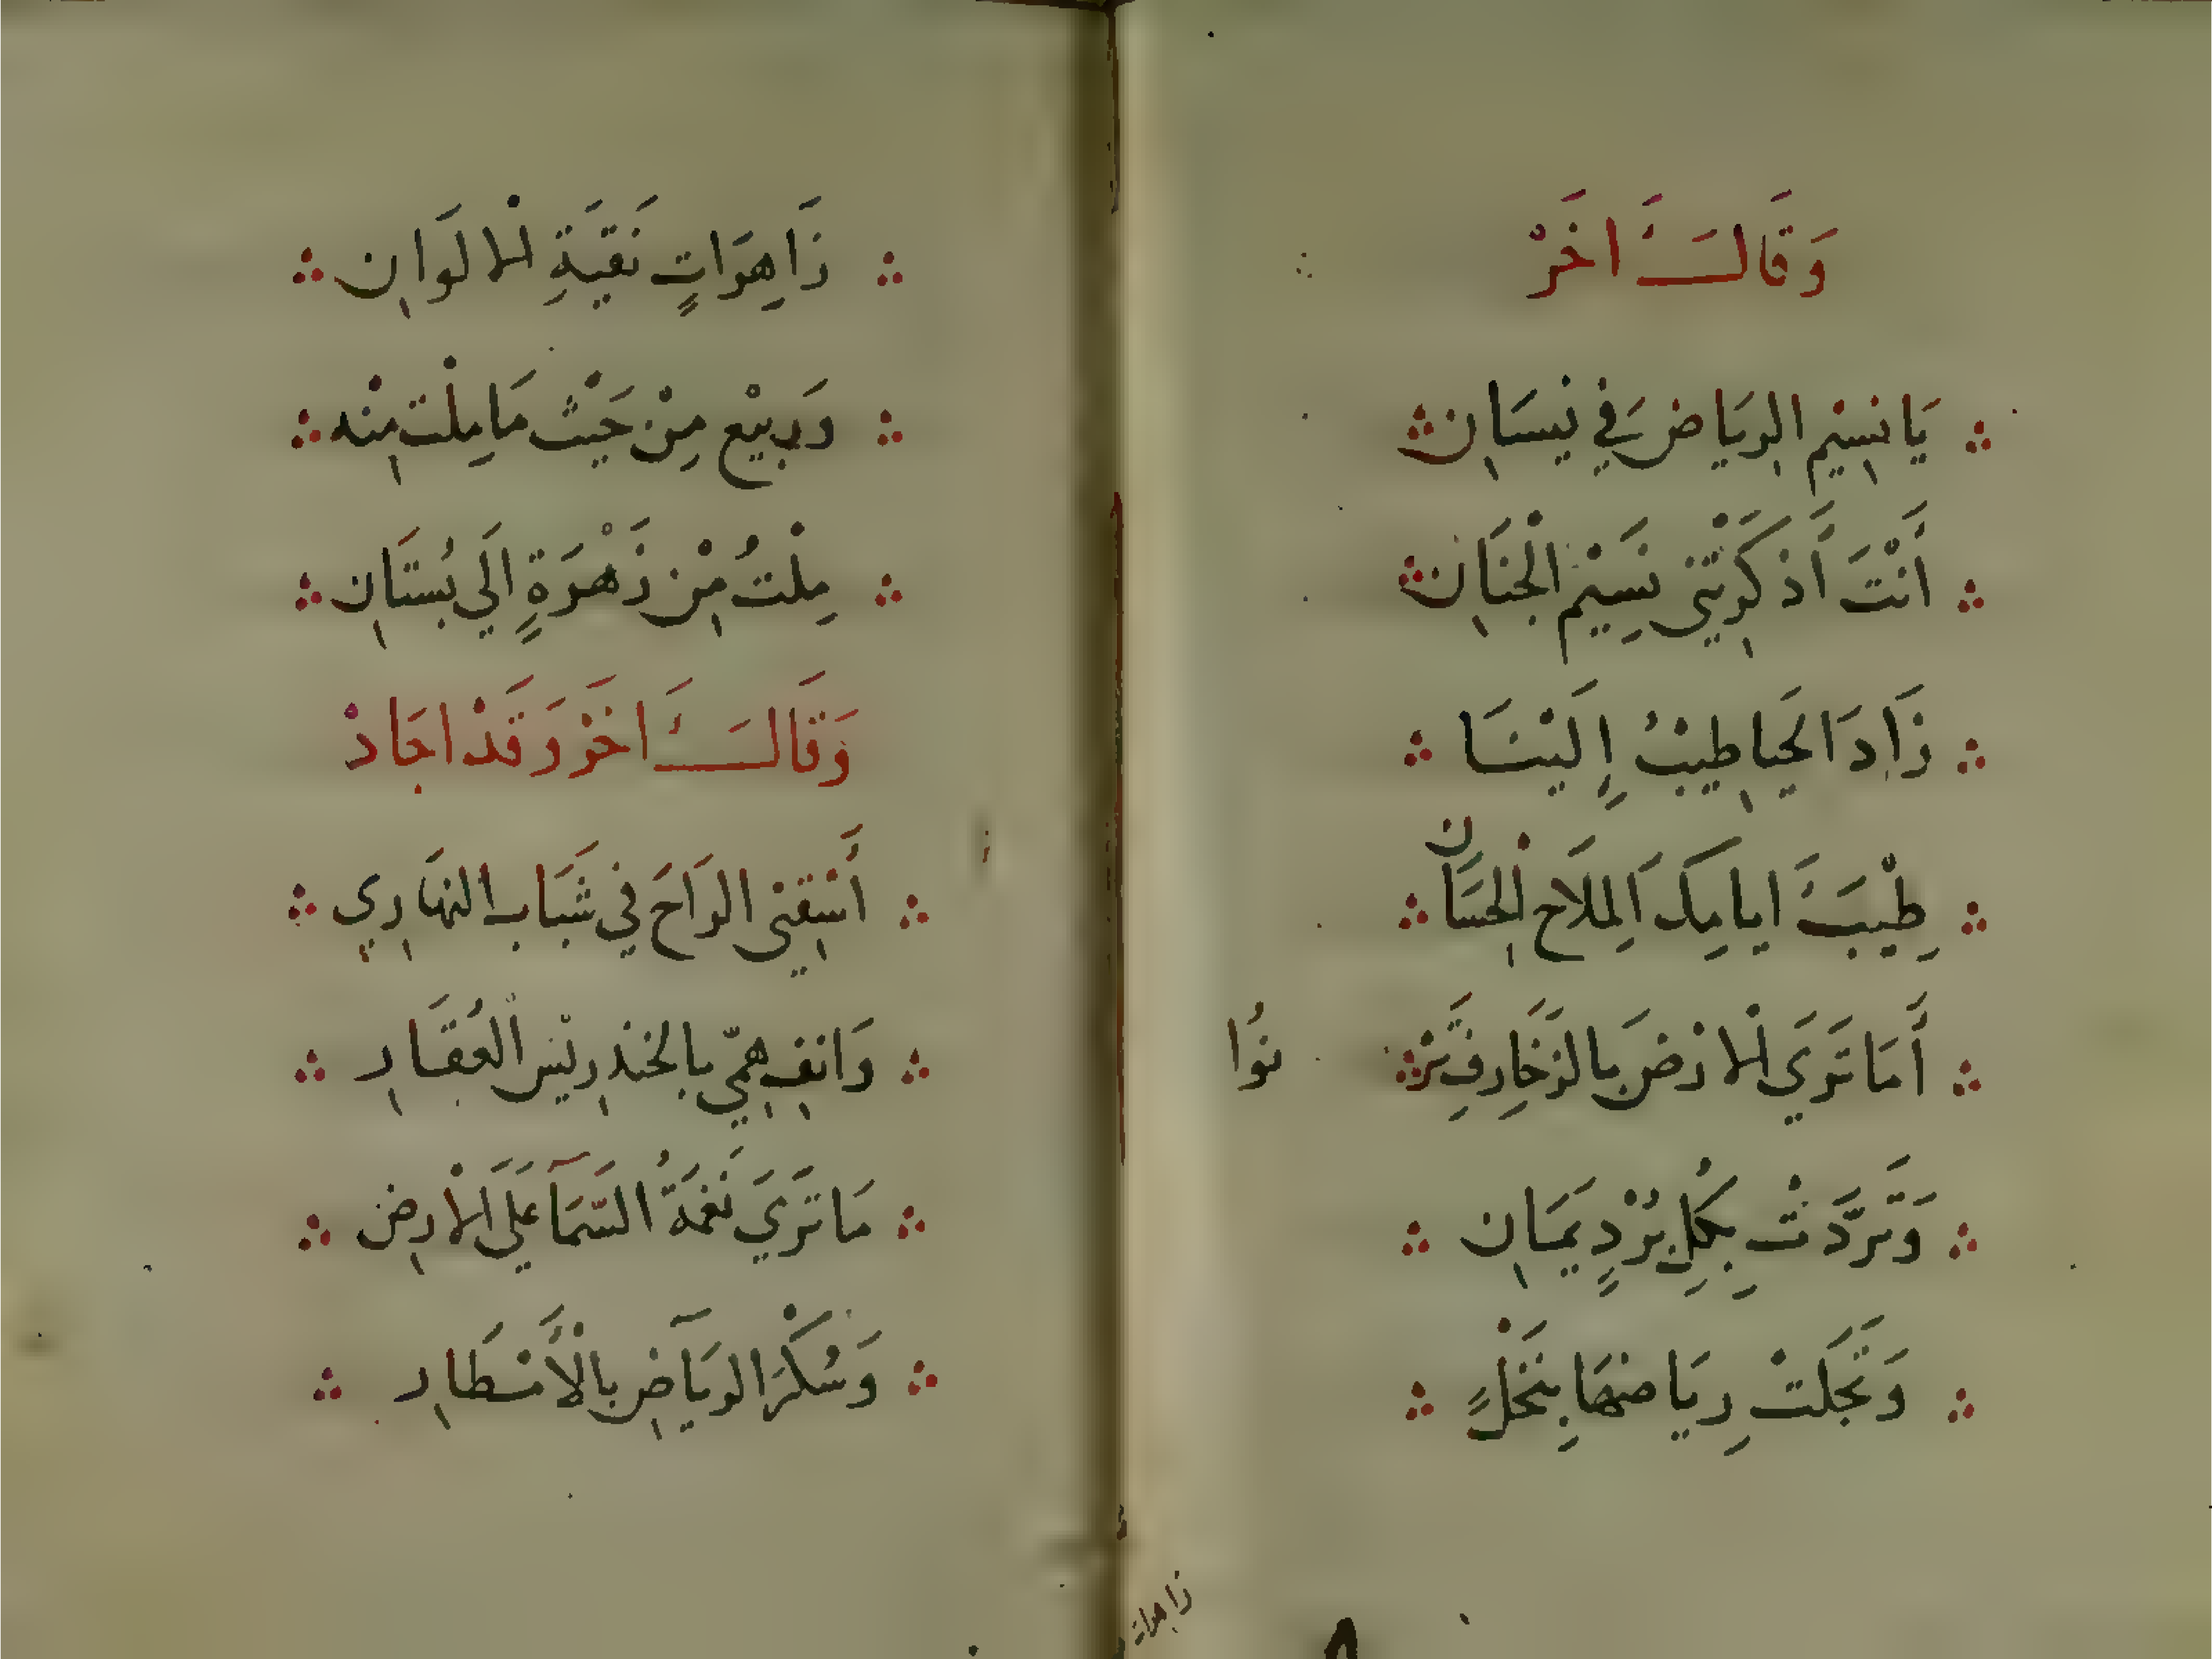 وَقَالَ اخَرْ
يَا نسِيم الريَاض فِي نيسَانِ
أَنْتَ أَذكرتني نَسِيْم الْجنَانِ
زَادَ الحَيا طِيبُ إِلَيْنَا
طِيْبَ ايامِكَ المِلَاح الْحِسَانِ
أَمَا تَرَي الْارْضَ بالزَخَارِفِ تَزْ نوُا
وَتَرَدَّتْ بِكُلِ بُرْدٍ يَمَانِ
وَتَجَلَتْ رِيَاضهَا بِنَخْلٍ
زاهرات
زَاهِرَاتٍ نَقيَةِ الْالوَانِ
وَرَبيْعٍ مِنْ حَيْثُ مَا مِلْت مِنْه
مِلْتُ مِنْ زَهْرَةٍ اَلي بُستَانِ
وَقَالَ اخَر وَقَدْ اجَادْ
أَسْقِني الرَاحَ فِي شَبَاب النهَارِي
وَانفِ هَمِّي بالخندرِيْس الْعُقَارِ
مَا تَرَيَ نَغمَةُ السَّمَآ عَلَي الْارضِ
وَسُكْرَ الريَآضِ بالْأَمْطَارِ